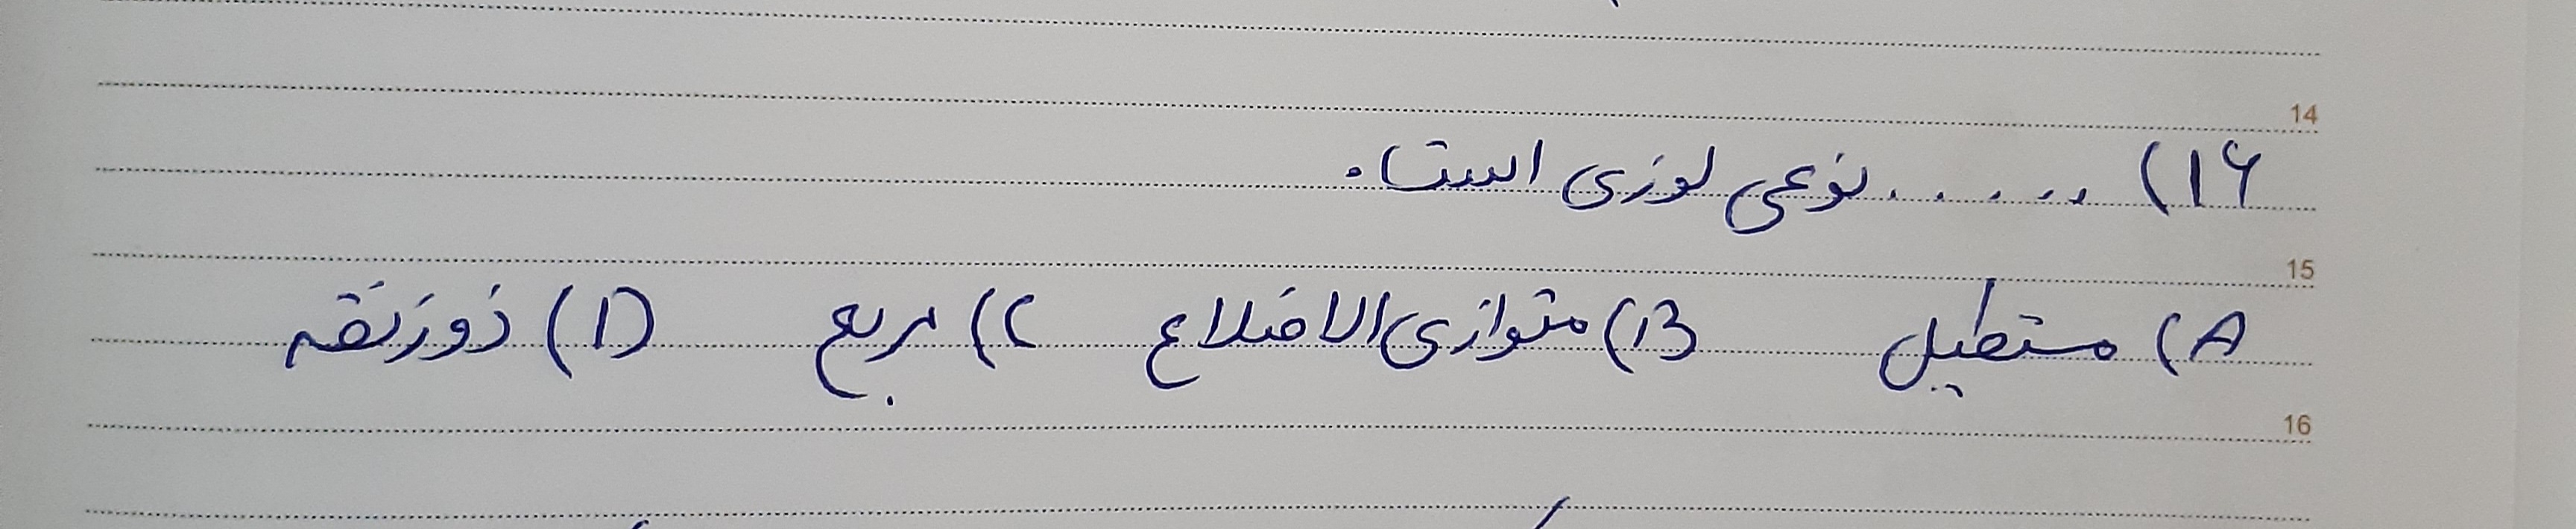 14
۱۶) ...... نوعی لوزی است.
15
A) مستطیل B) متوازی الاضلاع C) مربع D) ذوزنقه
16